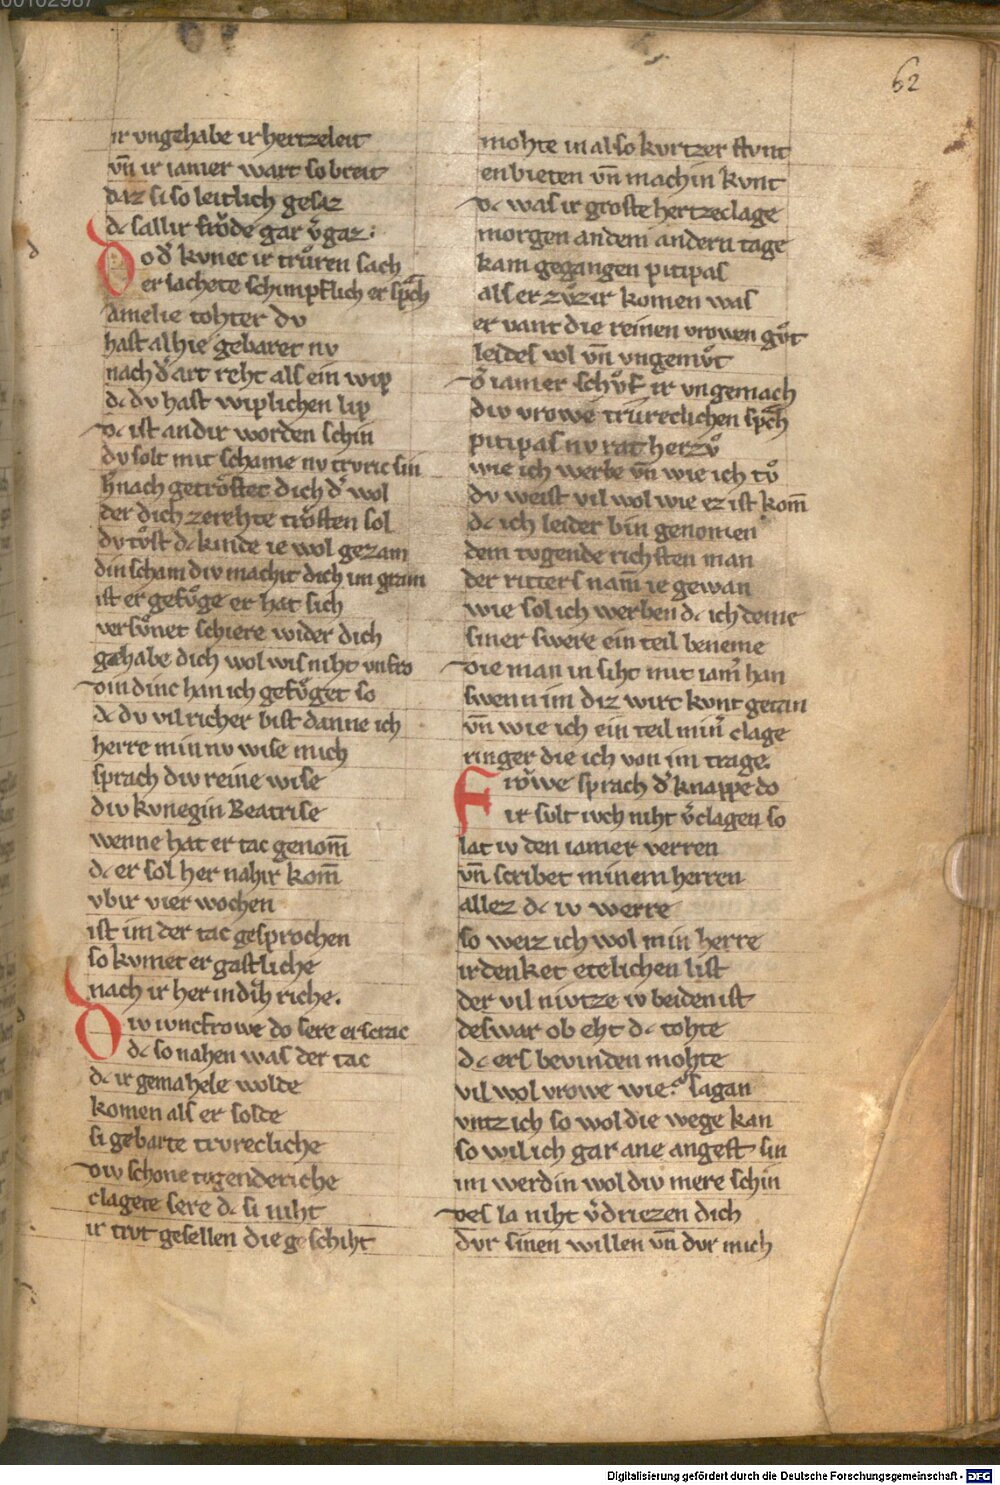 62
ir vngehabe ir hertzeleit
vn̄ ir iamer wart so breit
daz si so leitlich gesaz
dc sallir frȯde gar v̓gaz:
Do d̓ kvnec ir trůren sach
er lachete schimpflich er sp̄ch
Amelie tohter dv
hast alhie gebaret nv
nach d̓ art reht als ein wip
dc dv hast wiplichen lip
dc ist an dir worden schin
dv solt mit schame nv trvric sin
h̓nach getrȯstet dich d̓ wol
der dich zerehte trȯsten sol
dv tůst dc kinde ie wol gezam
din scham div machit dich im gram
ist er gefůge er hat sich
versůnet schiere wider dich
gehabe dich wol wis niht vnfro
din dinc han ich gefůget so
dc dv vil richer bist danne ich
herre min nv wise mich
sprach div reine wise
div kvnegin Beatrise
wenne hat er tac genom̄
dc er sol her nahir kom̄
vbir vier wochen
ist im der tac gesprochen
so kvmet er gastliche
nach ir her in dih̄ riche.
Div ivncfrowe do sere erscrac
dc so nahen was der tac
dc ir gemahele wolde
komen als er solde
si gebarte trvrecliche
div schone tvgenderiche
clagete sere dc si niht
ir trvt gesellen die geschiht
mohte in also kvrtzer stvnt
enbieten vn̄ machin kvnt
dc was ir groste hertzeclage
morgen an dem andern tage
kam gegangen pitipas
als er zůzir komen was
er vant die reinen vrowen gůt
leides vol vn̄ vngemůt
d̓ iamer schůf ir vngemach
div vrowe trureclichen sp̄ch
pitipas nv rat herzů
wie ich werbe vn̄ wie ich tů
dv weist vil wol wie ez ist kom̄
dc ich leider bin genomen
dem tvgende richsten man
der ritters nam̄ ie gewan
wie sol ich werben dc ich deme
siner swere ein teil beneme
die man in siht mit iam̓ han
swenn im diz wirt kvnt getan
vn̄ wie ich ein teil min̓ clage
ringer die ich von im trage.
Frȯwe sprach d̓ knappe do
ir svlt ivch niht v̓clagen so
lat iv den iamer verren
vn̄ scribet minem herren
allez dc iv werre
so weiz ich wol min herre
irdenket etelichen list
der vil nivtze iv beiden ist
deswar ob eht dc tohte
dc ers bevinden mohte
vil wol vrowe wie? sagan
vntz ich so wol die wege kan
so wil ich gar ane angest sin
im werdin wol div mere schin
des la niht v̓driezen dich
dvr sinen willen vn̄ dvr mich
Digitalisierung gefördert durch die Deutsche Forschungsgemeinschaft - DFG